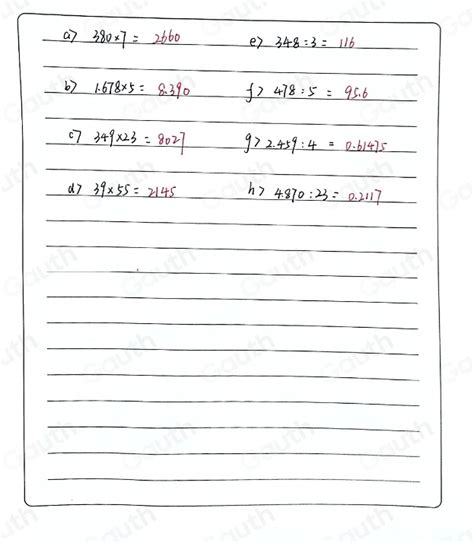 a> 380×7 = 2660
e> 348:3 = 116
b> 1.678×5 = 8.390
f> 478:5 = 95.6
c> 349×23 = 8027
g> 2.459:4 = 0.61475
d> 39×55 = 2145
h> 4.870:23 = 0.2117
Gauth